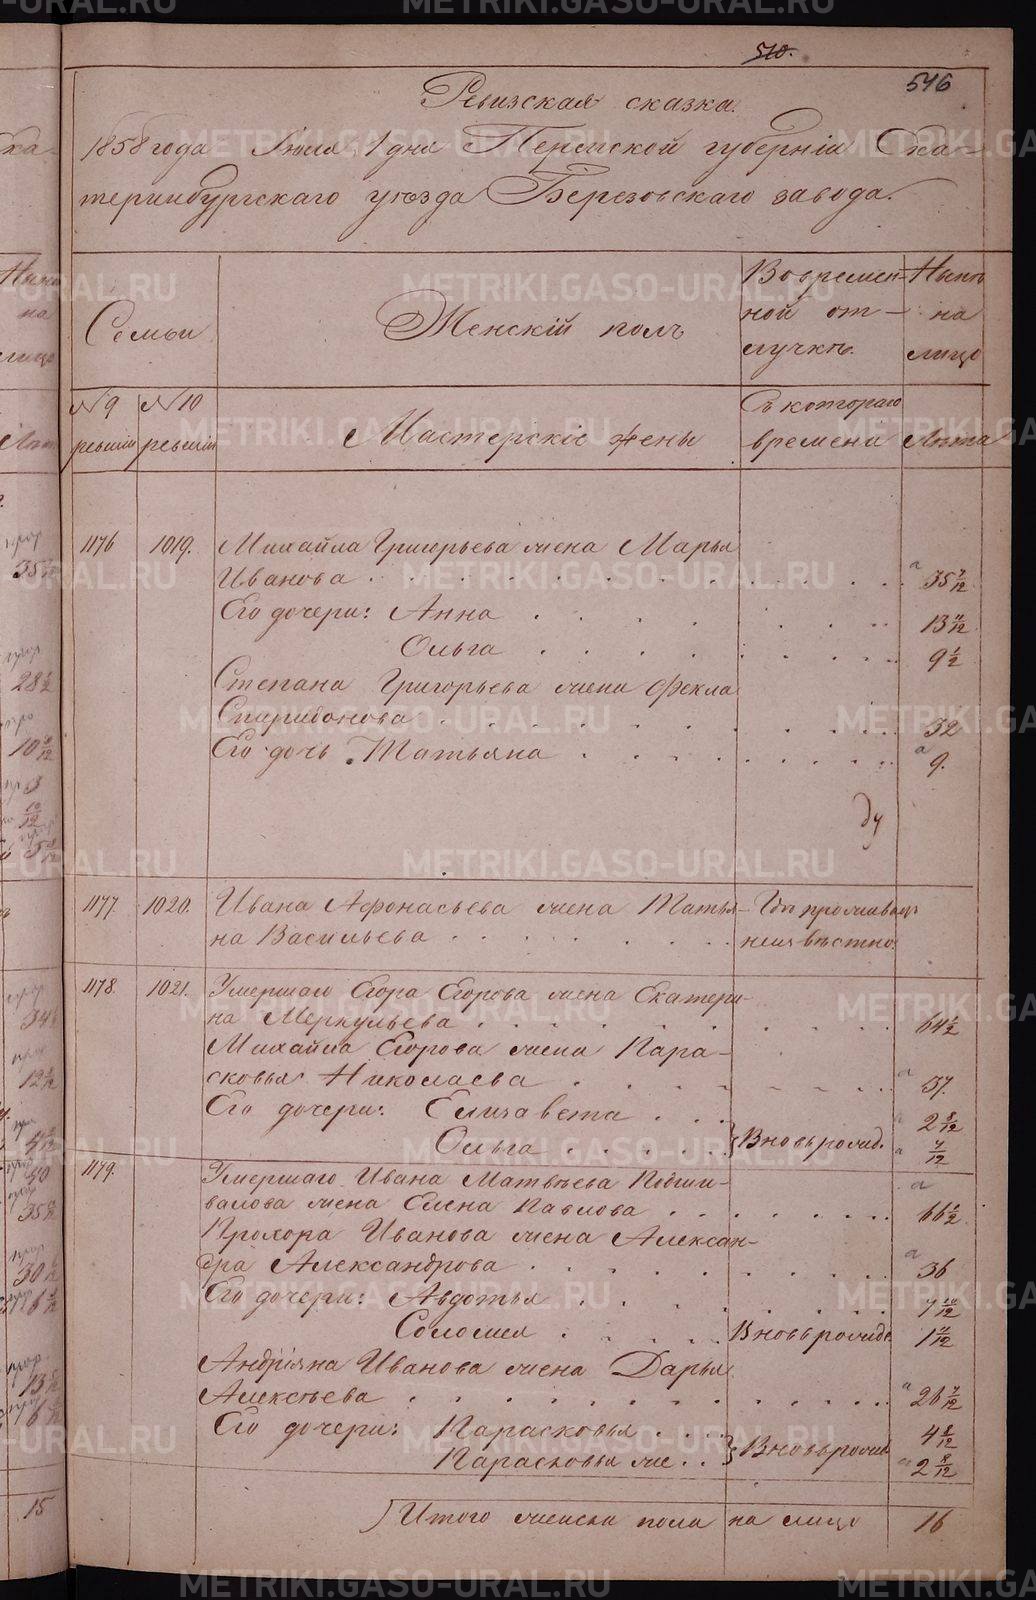 510.
546
Ревизская сказка.
1858 года Іюля 1 дня Пермской губерніи Ека-
теринбургскаго уѣзда Березовскаго завода.
Семьи
Женскій полъ
Во времен-
ной от-
лучкѣ.
Нынѣ
на
лицо
№ 9
ревизіи
№ 10
ревизіи
Мастерскіе жены
Съ котораго
времени
Лѣта
1176 1019. Михайла Григорьева жена Марья
Иванова 35 7/12
Его дочери: Анна 13 11/12
Ольга 9 1/2
Степана Григорьева жена Фекла
Спиридонова 32
Его дочь Татьяна 9.
1177. 1020. Ивана Афонасьева жена Татья- Гдѣ проживаетъ
на Васильева неизвѣстно.
1178. 1021. Умершаго Егора Егорова жена Екатери-
на Меркульева 64 1/2
Михайла Егорова жена Пара-
сковья Николаева 37.
Его дочери: Елизавета 2 8/12
Ольга } Вновьрожд. 7/12
1179. Умершаго Ивана Матвѣева Подши-
валова жена Елена Павлова 66 1/2
Прохора Иванова жена Алексан-
дра Александрова 36
Его дочери: Авдотья 7 10/12
Соломея Вновьрожде 1 11/12
Андріяна Иванова жена Дарья
Алексѣева 26 7/12
Его дочери: Парасковья 4 8/12
Парасковья же } Вновьрожд 2 8/12
Итого женска пола на лицо 16
METRIKI.GASO-URAL.RU